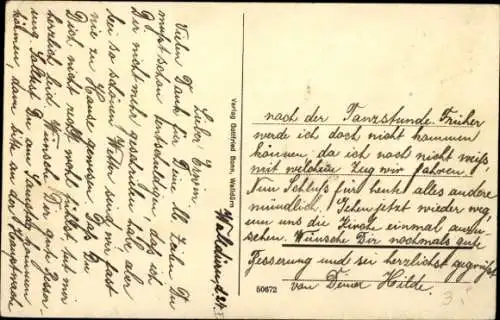 Walldürn, d. 24.
Lieber Erwin.
Vielen Dank für Deine lb. Zeilen. Du
mußt schon entschuldigen daß ich
Dir nicht mehr geschrieben habe, aber
bei so schönem Wetter sind wir fast
nie zu Hause gewesen. Daß Du
Dich nicht recht wohl fühlst tut mir
herzlich leid. Wünsche Dir gute Besser-
ung. Solltest Du am Samstag kommen
können, dann bitte an der Hauptwache
nach der Tanzstunde. Früher
werde ich doch nicht kommen
können, da ich noch nicht weiß,
mit welchem Zug wir fahren.
Zum Schluß für heute alles andere
mündlich. Gehen jetzt wieder weg
um uns die Kirche einmal anzu-
sehen. Wünsche Dir nochmals gute
Besserung und sei herzlichst gegrüßt
von Deiner Hilde.
Verlag Gottfried Bonn, Walldürn
50672
3.-